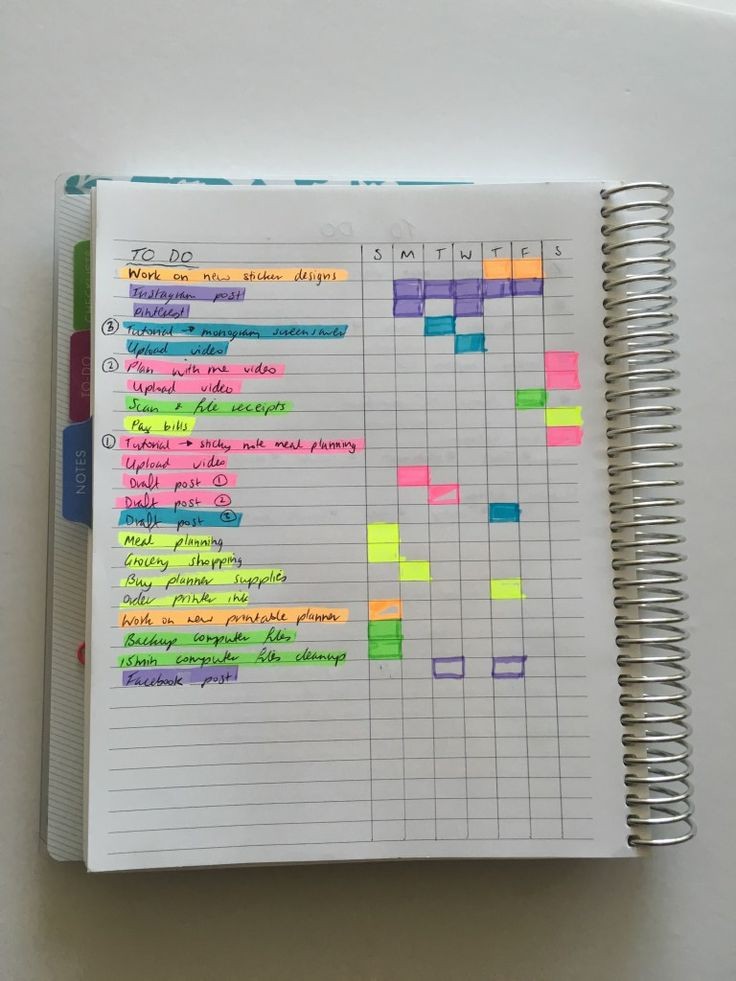 TO DO S M T W T F S
Work on new sticker designs
Instagram post
Pinterest
③ Tutorial → monogram screensaver
Upload video
② Plan with me video
Upload video
Scan & file receipts
Pay bills
① Tutorial → sticky note meal planning
Upload video
Draft post ①
Draft post ②
Draft post ③
Meal planning
Grocery shopping
Buy planner supplies
Order printer ink
Work on new printable planner
Backup computer files
15min computer files cleanup
Facebook post
TO-DO
NOTES